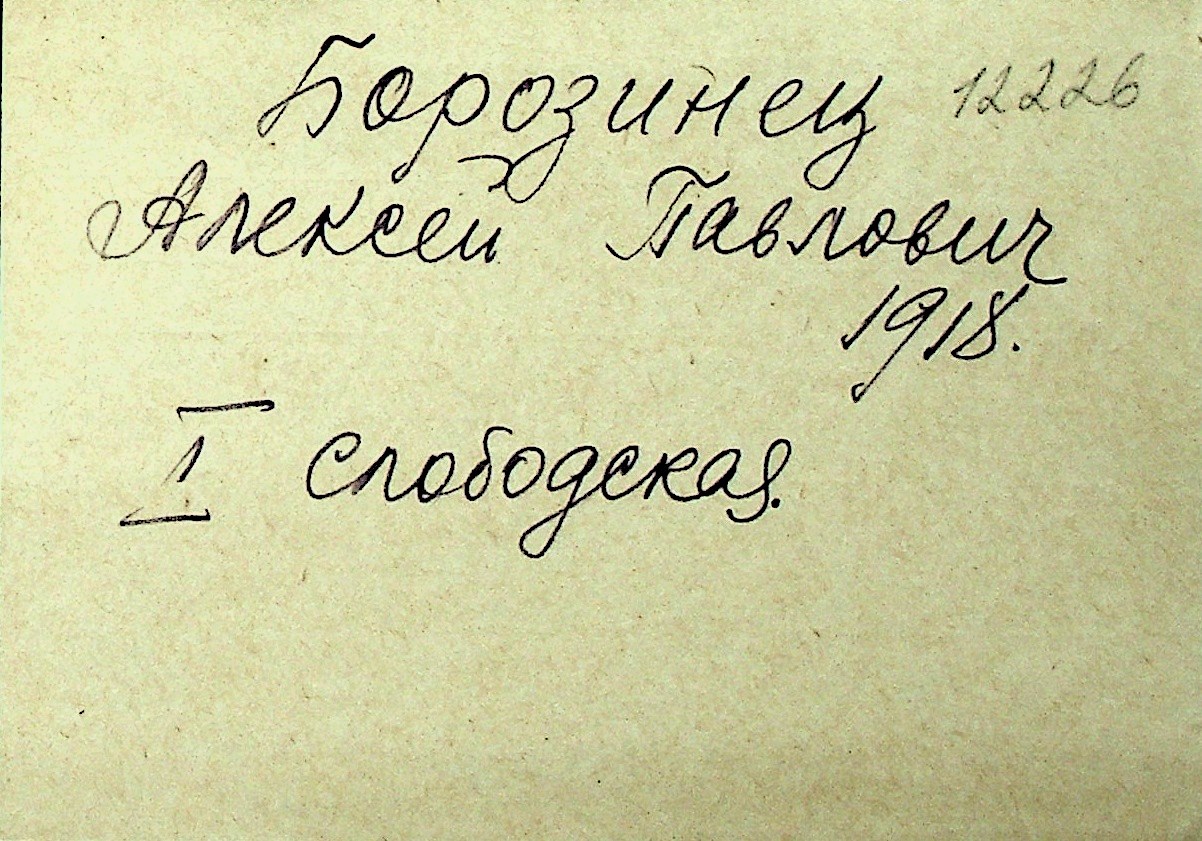 Борозинец 12226
Алексей Павлович
1918.
I слободская.